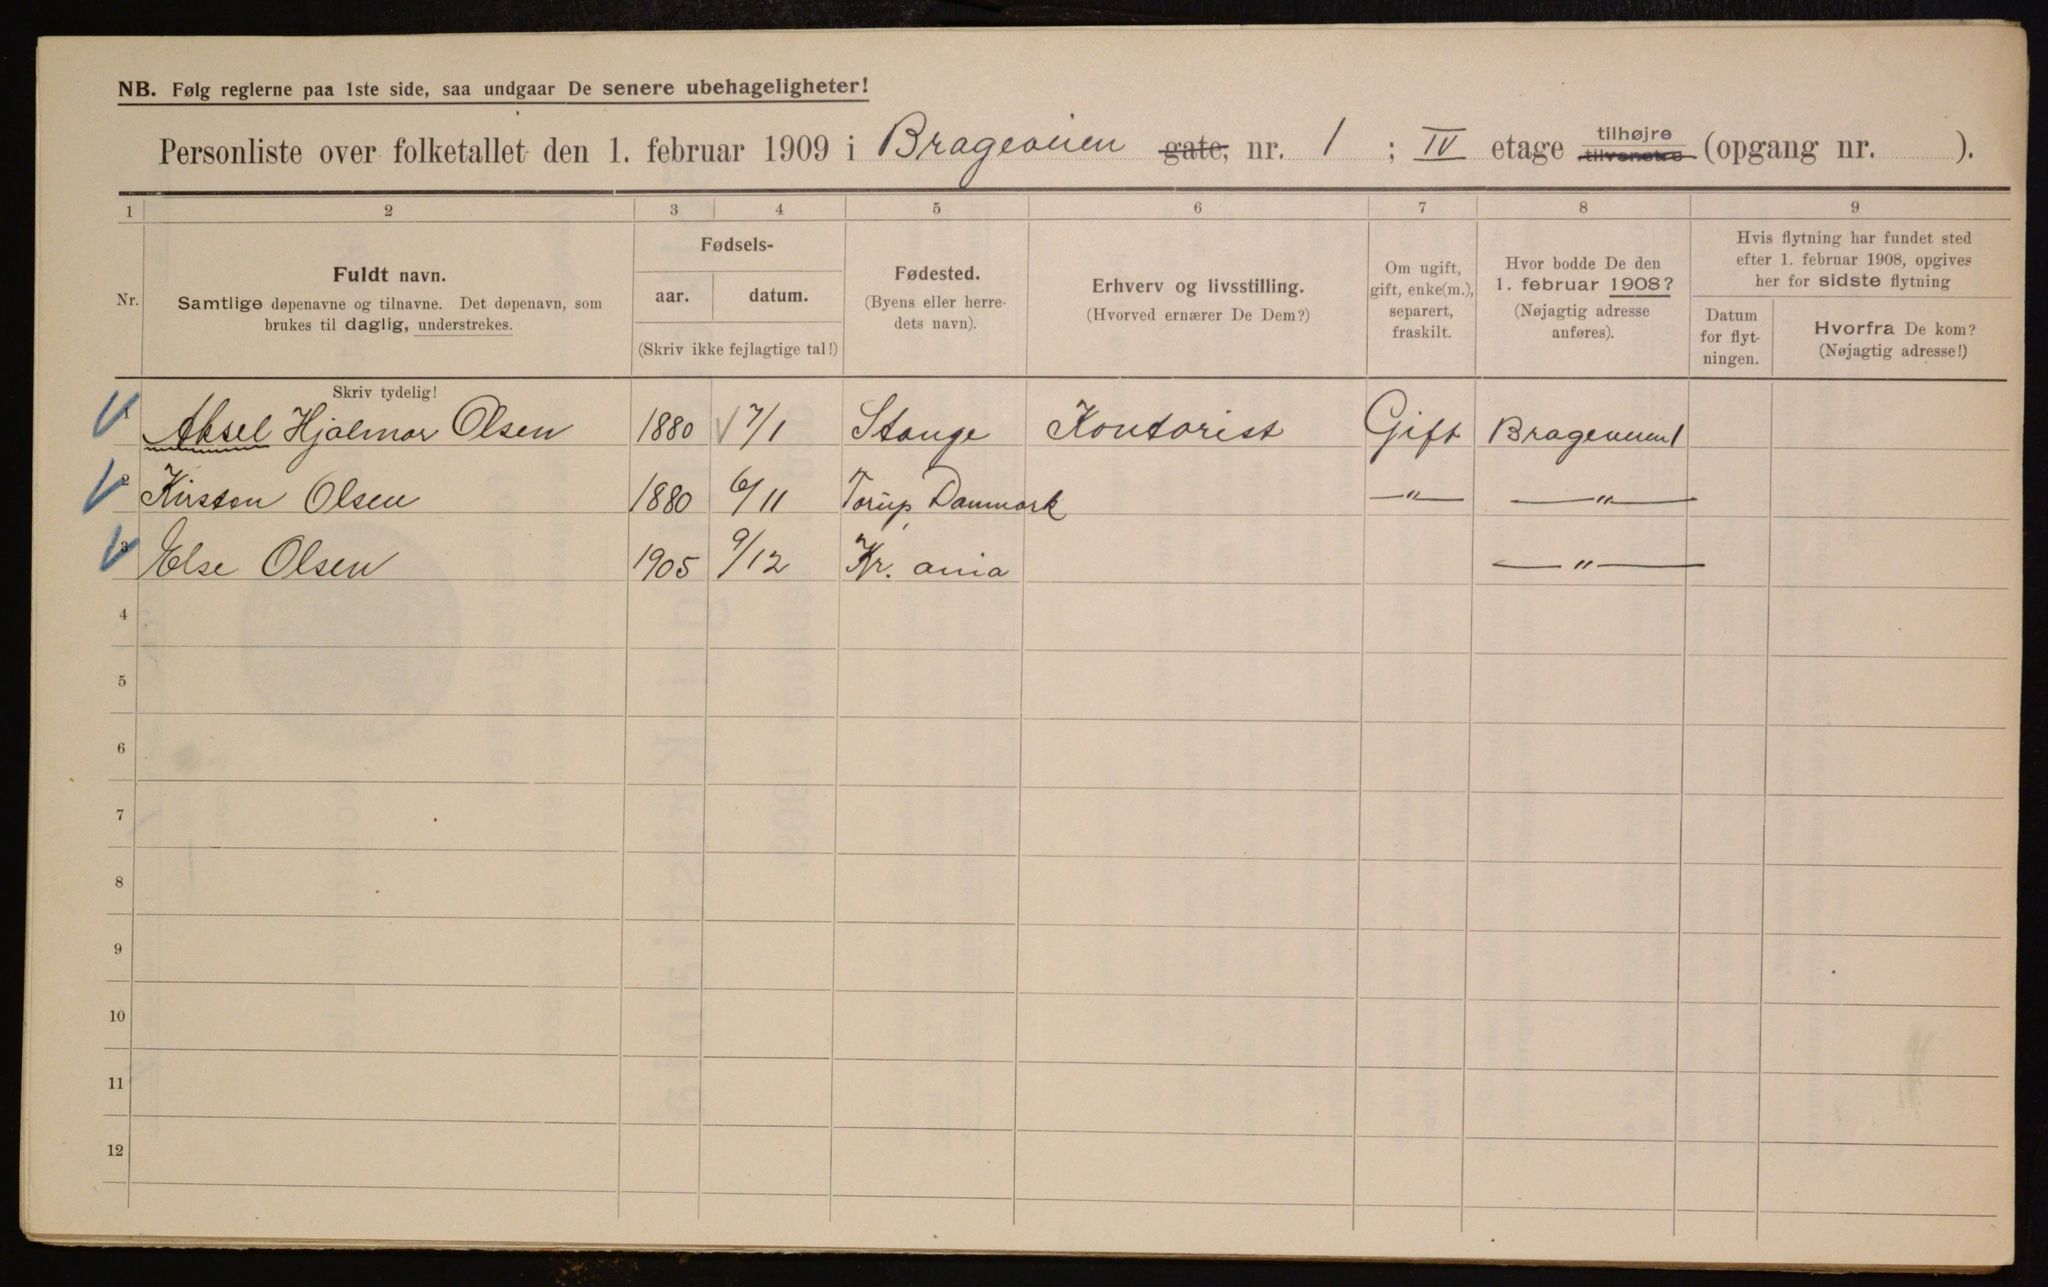 NB. Følg reglerne paa 1ste side, saa undgaar De senere ubehageligheter!
Personliste over folketallet den 1. februar 1909 i Brageveien gate, nr. 1 ; IV etage tilhøjre tilvenstre (opgang nr. ).
1 2 3 4 5 6 7 8 9
Nr.
Fuldt navn.
Samtlige døpenavne og tilnavne. Det døpenavn, som
brukes til daglig, understrekes.
Fødsels-
aar. datum.
(Skriv ikke fejlagtige tal!)
Fødested.
(Byens eller herre-
dets navn).
Erhverv og livsstilling.
(Hvorved ernærer De Dem?)
Om ugift,
gift, enke(m.),
separert,
fraskilt.
Hvor bodde De den
1. februar 1908?
(Nøjagtig adresse
anføres).
Hvis flytning har fundet sted
efter 1. februar 1908, opgives
her for sidste flytning
Datum
for flyt-
ningen.
Hvorfra De kom?
(Nøjagtig adresse!)
Skriv tydelig!
1 Aksel Hjalmar Olsen 1880 7/1 Stange Kontorist Gift Brageveien 1
2 Kirsten Olsen 1880 6/11 Torup Danmark — " — — " —
3 Else Olsen 1905 9/12 Kr. ania — " —
4
5
6
7
8
9
10
11
12